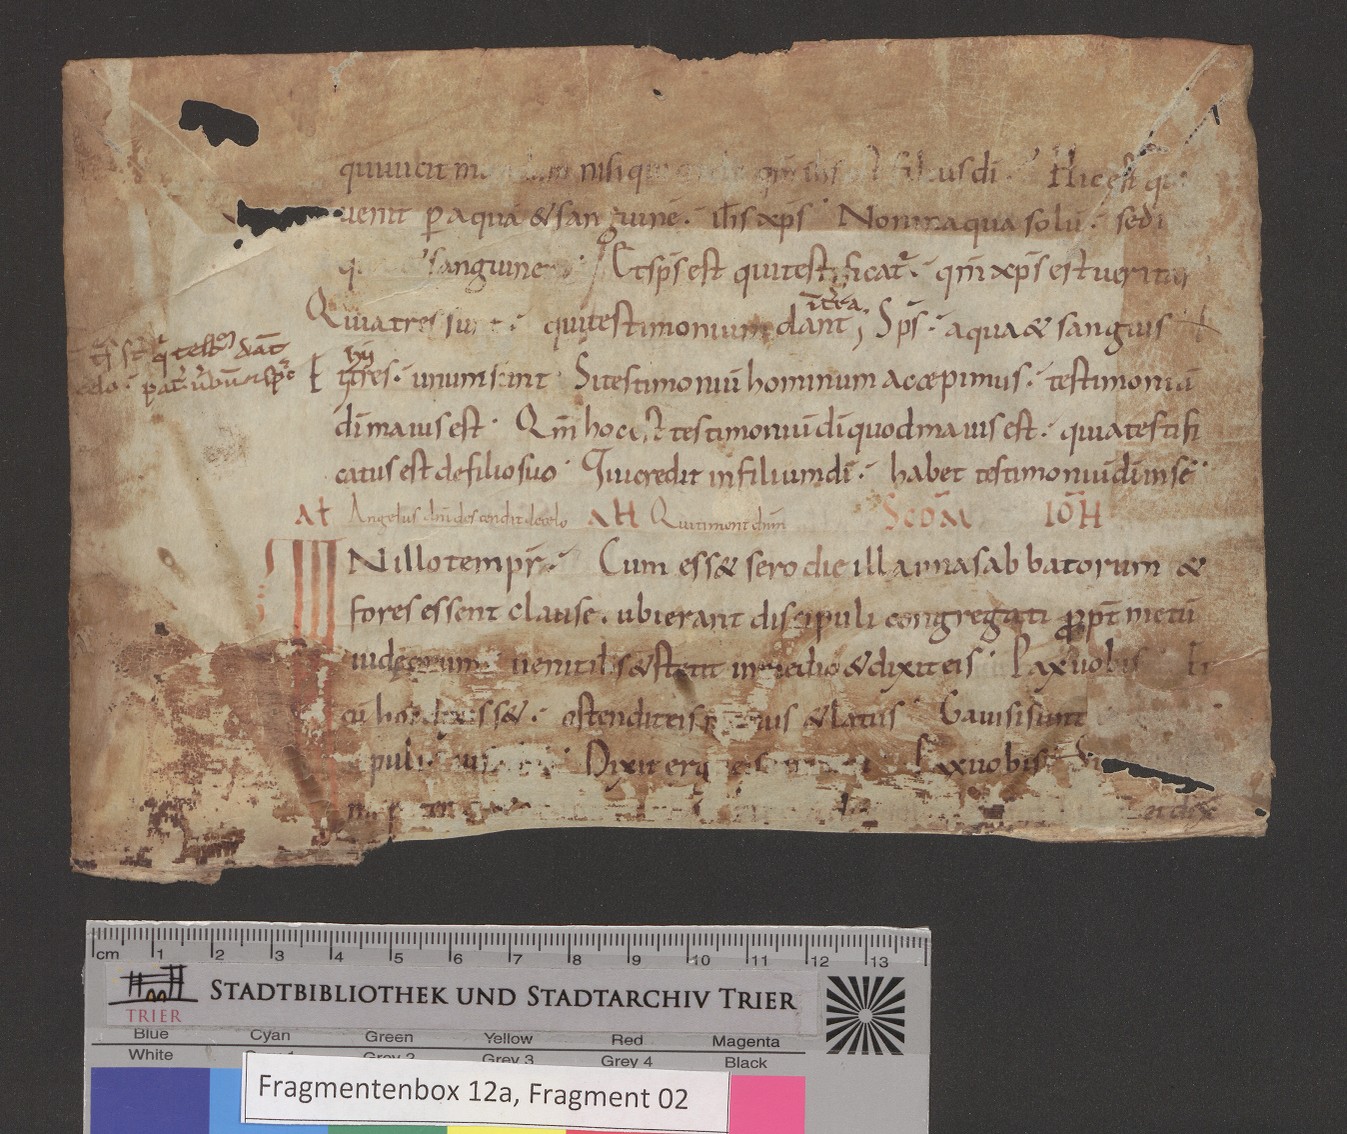 qui uicit nisi qui filius di · Hic est qui
uenit p aquā & sanguinē · ihs xps · Non in aqua solū · sed i
sanguine · Et sps est qui testificat̄ · qm̄ xps est ueritas
Quia tres sunt · qui testimonium dant ī t̄ra ; Sps · aqua & sanguis
hij tres · unum sunt Si testimoniū hominum accepimus · testimoniū
dī maius est · Qm̄ hoc est testimoniū dī quod maius est · quia testifi
catus est de filio suo · Qui credit in filium dī · habet testimoniū dī in sē
at Angelus dn̄i descendit de celo aH Qui timent dnm Scdm IOH
IN illo tempr̄ · Cum ess& sero die illa una sabbatorum &
fores essent clause · ubi erant discipuli congregati ppt̄ metū
iudeorum · uenit ihs & stetit in medio & dixit eis · Pax uobis
cū hoc dixiss& · ostendit eis & latus · Gauisi sunt
puli · Dixit ergo eis Pax uobis
et dix
t̄s st̄ q̄ testō dāt
celo · pat̄ ūbū & spc
cm 1 2 3 4 5 6 7 8 9 10 11 12 13
STADTBIBLIOTHEK UND STADTARCHIV TRIER
TRIER
Blue Cyan Green Yellow Red Magenta
White Grey 2 Grey 3 Grey 4 Black
Fragmentenbox 12a, Fragment 02